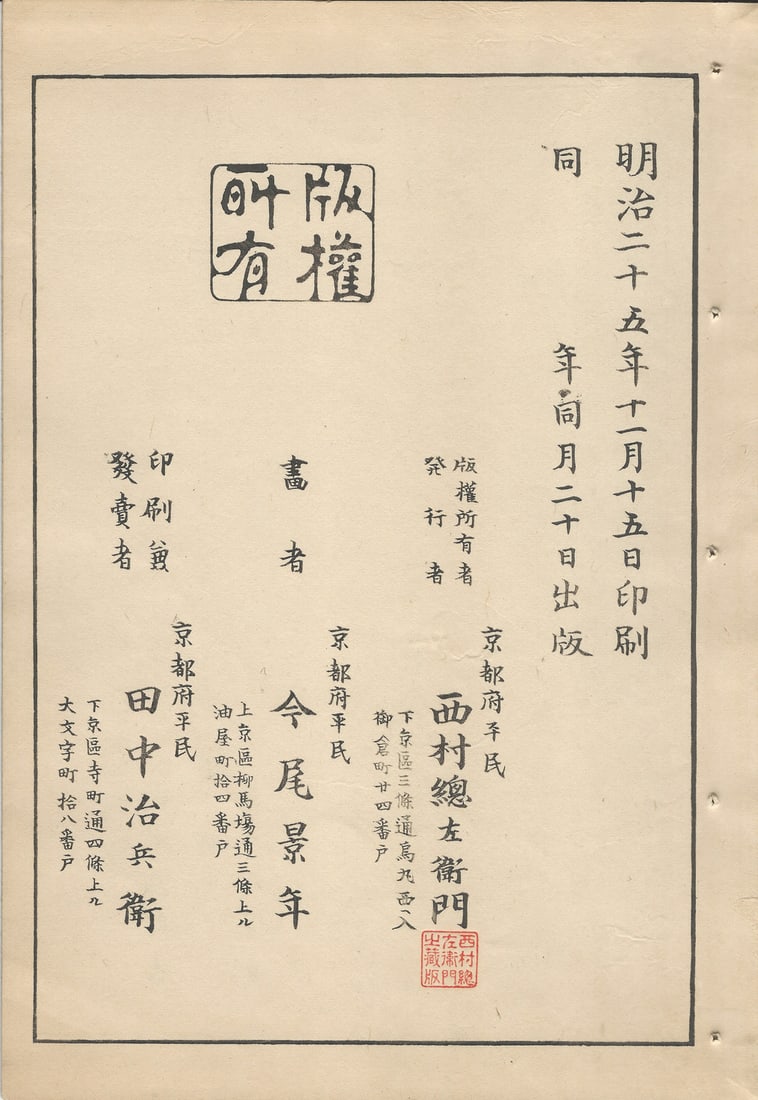 明治二十五年十一月十五日印刷
同年同月二十日出版
版權所有者
発行者
京都府平民
西村總左衛門
下京區三條通烏丸西入
御倉町廿四番戸
西村總左衛門之藏版
版權所有
畫者
京都府平民
今尾景年
上京區柳馬塲通三條上ル
油屋町拾四番戸
印刷兼
發賣者
京都府平民
田中治兵衛
下京區寺町通四條上ル
大文字町拾八番戸